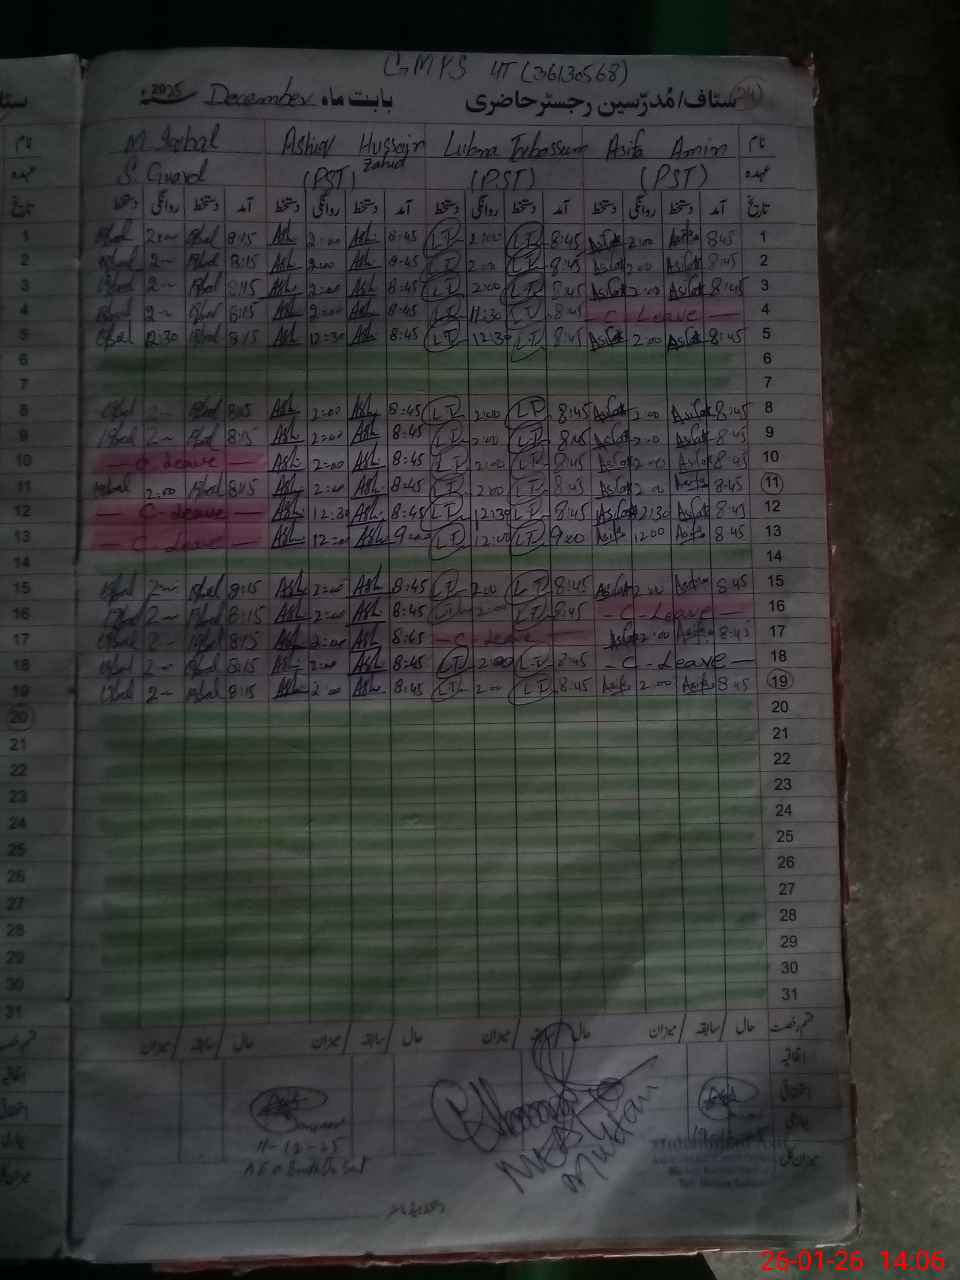 GMPS 4T (36130568)
ستاف/مُدرّسین رجسٹر حاضری (24) بابت ماہ December 2025
نام Asifa Amin Lubna Tabassum Ashiq Hussain Zahid M. Iqbal
عہدہ (PST) (PST) (PST) S. Guard
تاریخ آمد دستخط روانگی دستخط آمد دستخط روانگی دستخط آمد دستخط روانگی دستخط آمد دستخط روانگی دستخط
1 Iqbal 2:00 Iqbal 8:15 Ash 2:00 Ash 8:45 LT 2:00 LT 8:45 Asifa 2:00 Asifa 8:45 1
2 Iqbal 2— Iqbal 8:15 Ash 2:00 Ash 8:45 LT 2:00 LT 8:45 Asifa 2:00 Asifa 8:45 2
3 Iqbal 2— Iqbal 8:15 Ash 2:00 Ash 8:45 LT 2:00 LT 8:45 Asifa 2:00 Asifa 8:45 3
4 Iqbal 2— Iqbal 8:15 Ash 2:00 Ash 8:45 LT 11:30 LT 8:45 — C-Leave — 4
5 Iqbal 12:30 Iqbal 8:15 Ash 12:30 Ash 8:45 LT 12:30 LT 8:45 Asifa 2:00 Asifa 8:45 5
6 6
7 7
8 Iqbal 2— Iqbal 8:15 Ash 2:00 Ash 8:45 LT 2:00 LT 8:45 Asifa 2:00 Asifa 8:45 8
9 Iqbal 2— Iqbal 8:15 Ash 2:00 Ash 8:45 LT 2:00 LT 8:45 Asifa 2:00 Asifa 8:45 9
10 — C-Leave — Ash 2:00 Ash 8:45 LT 2:00 LT 8:45 Asifa 2:00 Asifa 8:45 10
11 Iqbal 2:00 Iqbal 8:15 Ash 2:00 Ash 8:45 LT 2:00 LT 8:45 Asifa 2:00 Asifa 8:45 11
12 — C-Leave — Ash 12:30 Ash 8:45 LT 12:30 LT 8:45 Asifa 12:30 Asifa 8:45 12
13 — C-Leave — Ash 12:00 Ash 9:00 LT 12:00 LT 9:00 Asifa 12:00 Asifa 8:45 13
14 14
15 Iqbal 2— Iqbal 8:15 Ash 2:00 Ash 8:45 LT 2:00 LT 8:45 Asifa 2:00 Asifa 8:45 15
16 Iqbal 2— Iqbal 8:15 Ash 2:00 Ash 8:45 LT 2:00 LT 8:45 — C-Leave — 16
17 Iqbal 2— Iqbal 8:15 Ash 2:00 Ash 8:45 — C-Leave — Asifa 2:00 Asifa 8:45 17
18 Iqbal 2— Iqbal 8:15 Ash 2:00 Ash 8:45 LT 2:00 LT 8:45 — C-Leave — 18
19 Iqbal 2— Iqbal 8:15 Ash 2:00 Ash 8:45 LT 2:00 LT 8:45 Asifa 2:00 Asifa 8:45 19
20 20
21 21
22 22
23 23
24 24
25 25
26 26
27 27
28 28
29 29
30 30
31 31
قسم رخصت حال / سابقہ / میزان حال / سابقہ / میزان حال / سابقہ / میزان حال / سابقہ / میزان
اتفاقیہ
میزان کل
11-12-25
AEO
Multan
26-01-26 14:06